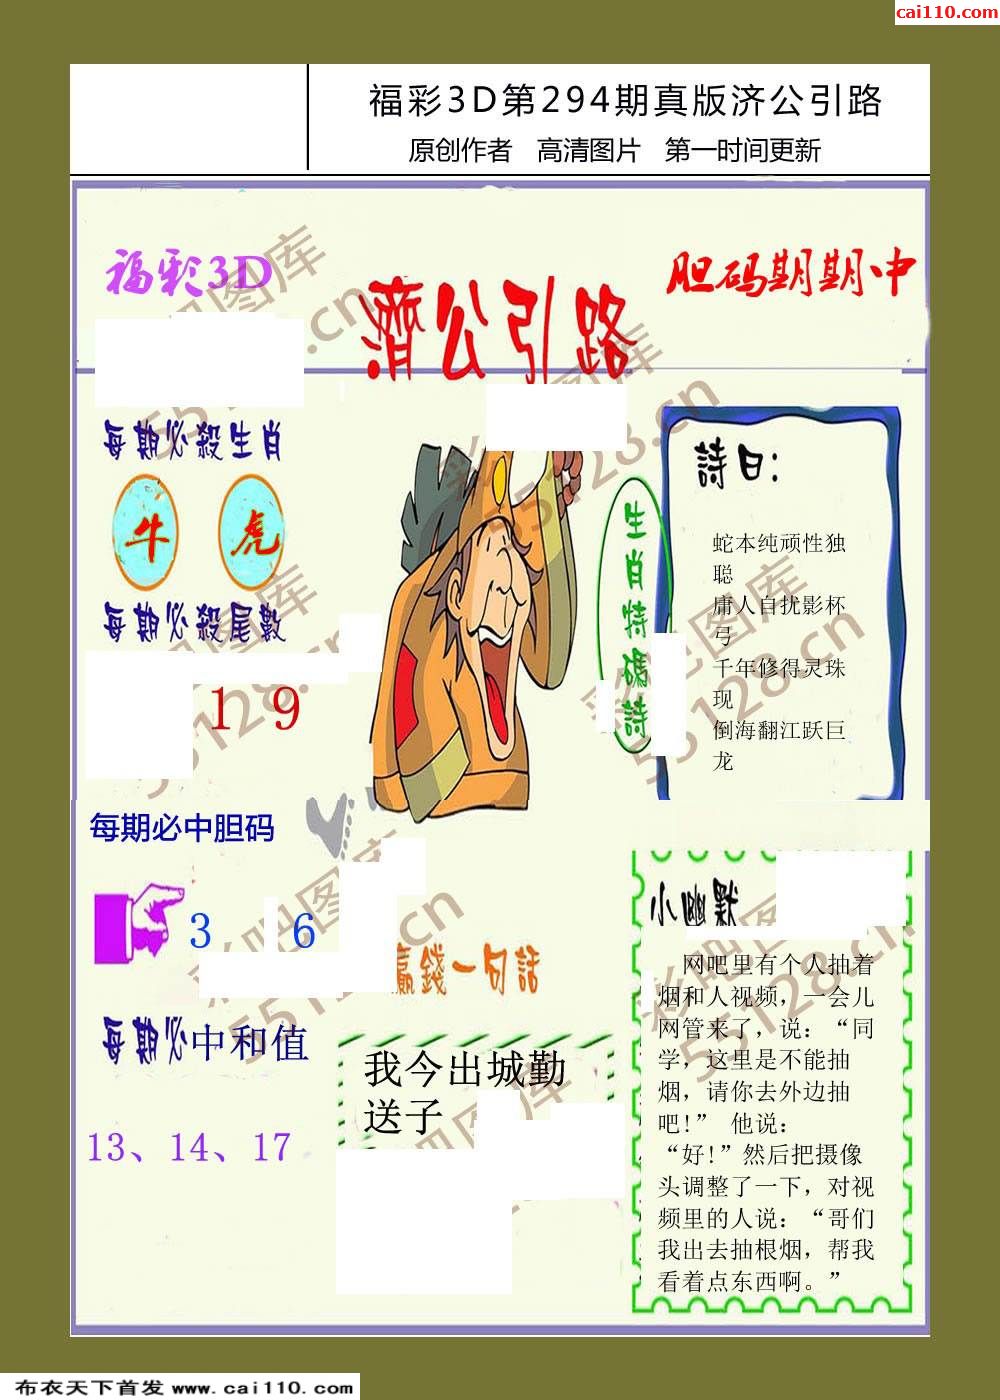 cai110.com
福彩3D第294期真版济公引路
原创作者 高清图片 第一时间更新
福彩3D
濟公引路
胆码期期中
每期必殺生肖
牛 虎
每期必殺尾數
1 9
生肖特碼詩
詩曰：
蛇本纯顽性独
聪
庸人自扰影杯
弓
千年修得灵珠
现
倒海翻江跃巨
龙
每期必中胆码
3 6
每期必中和值
13、14、17
贏錢一句話
我今出城勤
送子
小幽默
网吧里有个人抽着
烟和人视频，一会儿
网管来了，说：“同
学，这里是不能抽
烟，请你去外边抽
吧!” 他说：
“好!”然后把摄像
头调整了一下，对视
频里的人说：“哥们
我出去抽根烟，帮我
看着点东西啊。”
彩吧图库
55128.cn
彩吧图库
55128.cn
彩吧图库
55128.cn
彩吧图库
55128.cn
彩吧图库
55128.cn
彩吧图库
55128.cn
布衣天下首发 www.cai110.com